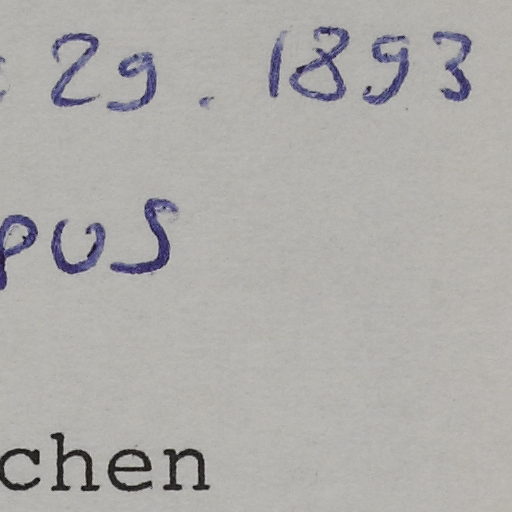 29. 1893
pus
chen